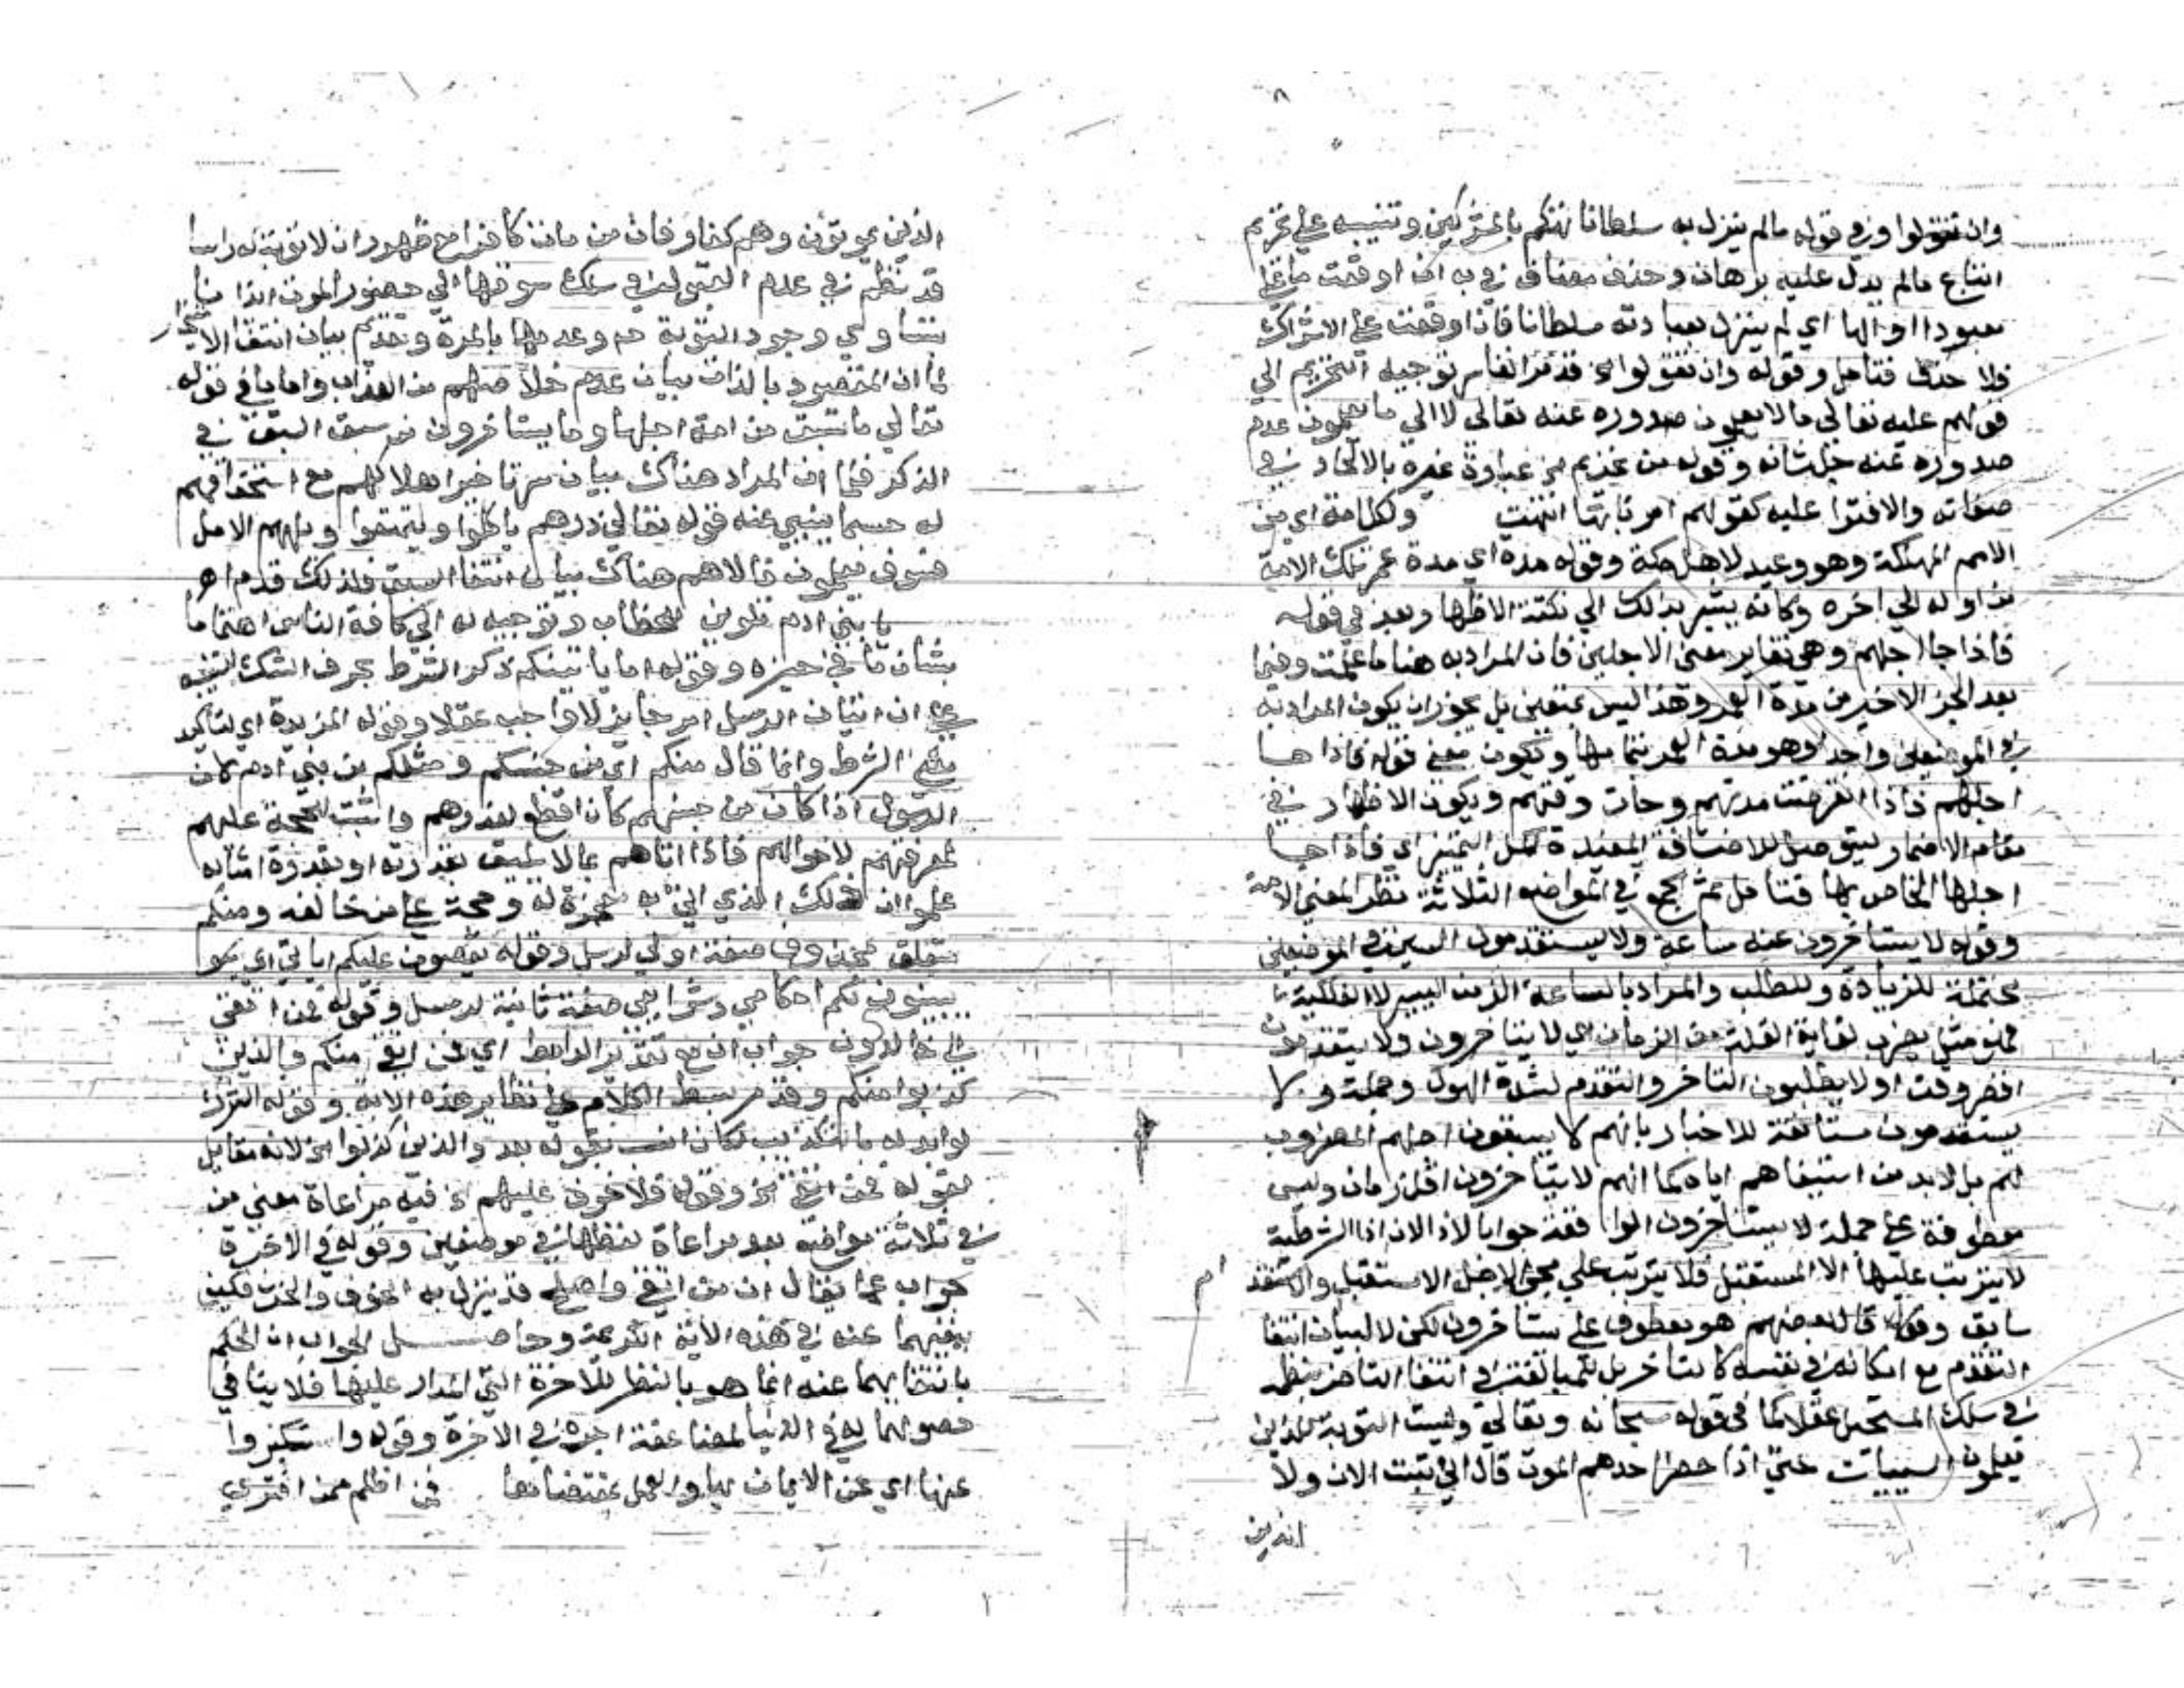 وان تقولوا وفي قوله مالم ينزل به سلطانا تهكم بالمشركين وتنبيه علي تحريم
اتباع مالم يدل عليه برهان وحذف مضاف في به ان اوقعت ما علي
معبودا او الها اي لم ينزل بعبادته سلطانا فاذا وقعت علي الاشراك
فلا حذف فتامل وقوله وان تقولوا الخ قد مر انفا سر توجيه التحريم الي
قولهم عليه تعالي ما لا يعلمون صدوره عنه تعالي لا الي ما يعلمون عدم
صدوره عنه جل شانه وقوله من تحريم الخ عبارة غيره بالالحاد في
صفاته والافترا عليه كقولهم امرنا بها انتهت ولكل امة اي من
الامم المهلكة وهو وعيد لاهل مكة وقوله مدة اي مدة عمر تلك الامة
من اوله الي اخره وكانه يشير بذلك الي نكتة الاظهار بعد في قوله
فاذا جا اجلهم وهي تغاير معنى الاجلين فان المراد به هنا ما علمت وفيما
بعد الجز الاخير من مدة العمر وهذا ليس بمتعين بل يجوز ان يكون المراد به
في الموضعين واحدا وهو مدة العمر بتمامها ويكون معنى قوله فاذا جا
اجلهم فاذا انقرضت مدتهم وحان وقتهم ويكون الاظهار في
مقام الاضمار ليتوصل للاضافة المفيدة لكل التمييز اي فاذا جا
اجلها الخاص بها فتامل ثم الجمع في المواضع الثلاثة نظر المعنى الامة
وقوله لا يستاخرون عنه ساعة ولا يستقدمون السين في الموضعين
محتملة للزيادة وللطلب والمراد بالساعة الزمن اليسير لا الفلكية
فهو مثل يضرب لغاية القلة من الزمان اي لا يتاخرون ولا يتقدمون
اقصر وقت او لا يطلبون التاخر والتقدم لشدة الهول وجملة ولا
يستقدمون مستانفة للاخبار بانهم لا يسبقون اجلهم المضروب
لهم بل لا بد من استيفاهم اياه كما انهم لا يتاخرون اقل زمان وليس
معطوفة علي جملة لا يستاخرون الواقعة جوابا لاذا لان اذا الشرطية
لا يترتب عليها الا المستقبل فلا يترتب علي مجي الاجل الا مستقبل والتقدم
سابق وقوله قال بعضهم هو معطوف علي يستاخرون لكن لا لبيان انتفا
التقدم مع امكانه في نفسه كالتاخر بل للمبالغة في انتفا التاخر بنظمه
في سلك المستحيل عقلا كما في قوله سبحانه وتعالي وليست التوبة للذين
يعملون السيئات حتي اذا حضر احدهم الموت قال اني تبت الان ولا
الذين
الذين يموتون وهم كفار فان من مات كافرا مع ظهور ان لا توبة له راسا
قد نظم في عدم القبول في سلك من سوفها الي حضور الموت ايذانا
بتساوي وجود التوبة ح وعدمها بالمرة وتقديم بيان انتفا الاستيخار
لما ان المقصود بالذات بيان عدم خلاصهم من العذاب واما ما في قوله
تعالي ما تسبق من امة اجلها وما يستاخرون من سبق السبق في
الذكر فلما ان المراد هناك بيان سر تاخير اهلاكهم مع استحقاقهم
له حسما ينبي عنه قوله تعالي ذرهم ياكلوا ويتمتعوا ويلههم الامل
فسوف يعلمون فالاهم هناك بيان انتفا السبق فلذلك قدم اهـ
يا بني ادم تلوين للخطاب وتوجيه له الي كافة الناس اهتماما
بشان ما في حيزه وقوله اما ياتينكم ذكر الشرط بحرف الشك للتنبيه
علي ان اتيان الرسل امر جايز لا واجب عقلا وقوله المزيدة اي لتاكيد
معنى الشرط وانما قال منكم اي من جنسكم ومثلكم من بني ادم لان
الرسول اذا كان من جنسهم كان اقطع لعذرهم واثبت للحجة عليهم
لمعرفتهم لاحوالهم فاذا اتاهم بما لا يليق بقدرته او بقدرة امثاله
علموا ان ذلك الذي اتي به معجزة له وحجة علي من خالفه ومنكم
متعلق بمحذوف صفة اولي لرسل وقوله يقصون عليكم اياتي اي
يبينون لكم احكامي وشرايعي صفة ثانية لرسل وقوله فمن اتقي
الي خالدون جواب ان مع تقدير الرابط اي فمن اتقي منكم والذين
كذبوا منكم وقد مر بسط الكلام علي نظاير هذه الاية وقوله الشرك
لو ابدله بالتكذيب لكان انسب بقوله بعد والذين كذبوا الخ لانه مقابل
لقوله فمن اتقي الخ وقوله فلا خوف عليهم الخ فيه مراعاة معنى من
في ثلاثة مواضع بعد مراعاة لفظها في موضعين وقوله في الاخرة
جواب عما يقال ان من اتقي واصلح قد ينزل به الخوف والحزن فكيف
نفيهما عنه في هذه الاية الكريمة وحاصل الجواب ان الحكم
بانتفايهما عنه انما هو بالنظر للاخرة التي المدار عليها فلا ينافي
حصولهما له في الدنيا لمضاعفة اجره في الاخرة وقوله واستكبروا
عنها اي عن الايمان بها والعمل بمقتضاها فمن اظلم ممن افتري